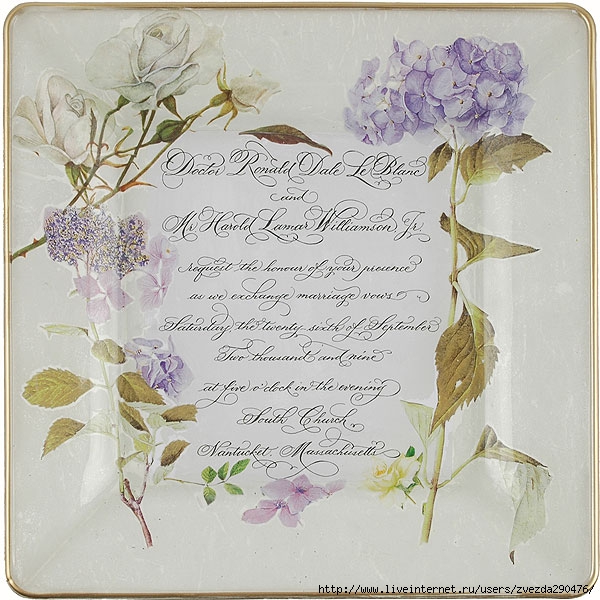 Doctor Ronald Dale Le Blanc
and
Mr Harold Lamar Williamson Jr.
request the honour of your presence
as we exchange marriage vows
Saturday the twenty sixth of September
Two thousand and nine
at five o'clock in the evening
South Church,
Nantucket, Massachusetts
http://www.liveinternet.ru/users/zvezda290476/